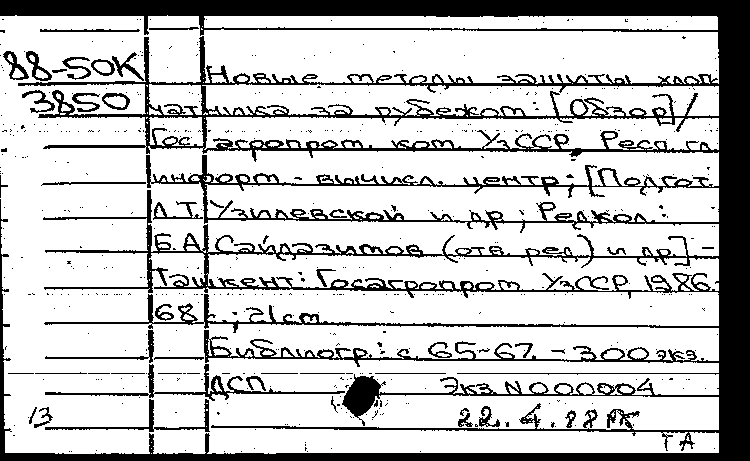 88-50К
3850
Новые методы защиты хлоп-
чатника за рубежом: [Обзор]/
Гос. агропром. ком. УзССР, Респ. гл.
информ.-вычисл. центр; [Подгот.
Л.Т. Узилевской и др; Редкол.:
Б.А. Сайдазимов (отв. ред.) и др] -
Ташкент: Госагропром УзССР, 1986.-
68 с.; 21 см.
Библиогр.: с. 65-67. - 300 экз.
ДСП. Экз. N 000004.
13 22.4.88
ТА